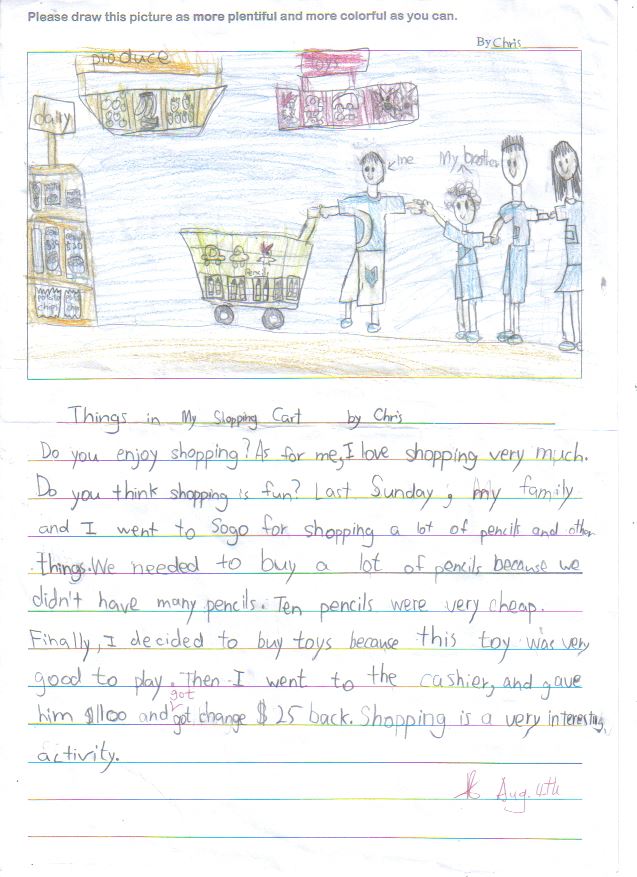 Please draw this picture as more plentiful and more colorful as you can.
By Chris
produce
toys
daily
me
My brother
Pencil
potato
chips
Things in My Slopping Cart by Chris
Do you enjoy shopping? As for me, I love shopping very much.
Do you think shopping is fun? Last Sunday, my family
and I went to Sogo for shopping a lot of pencils and other
things. We needed to buy a lot of pencils because we
didn't have many pencils. Ten pencils were very cheap.
Finally, I decided to buy toys because this toy was very
good to play. Then I went to the cashier, and gave
got
him $1100 and got change $25 back. Shopping is a very interesting
activity.
Aug. 4th